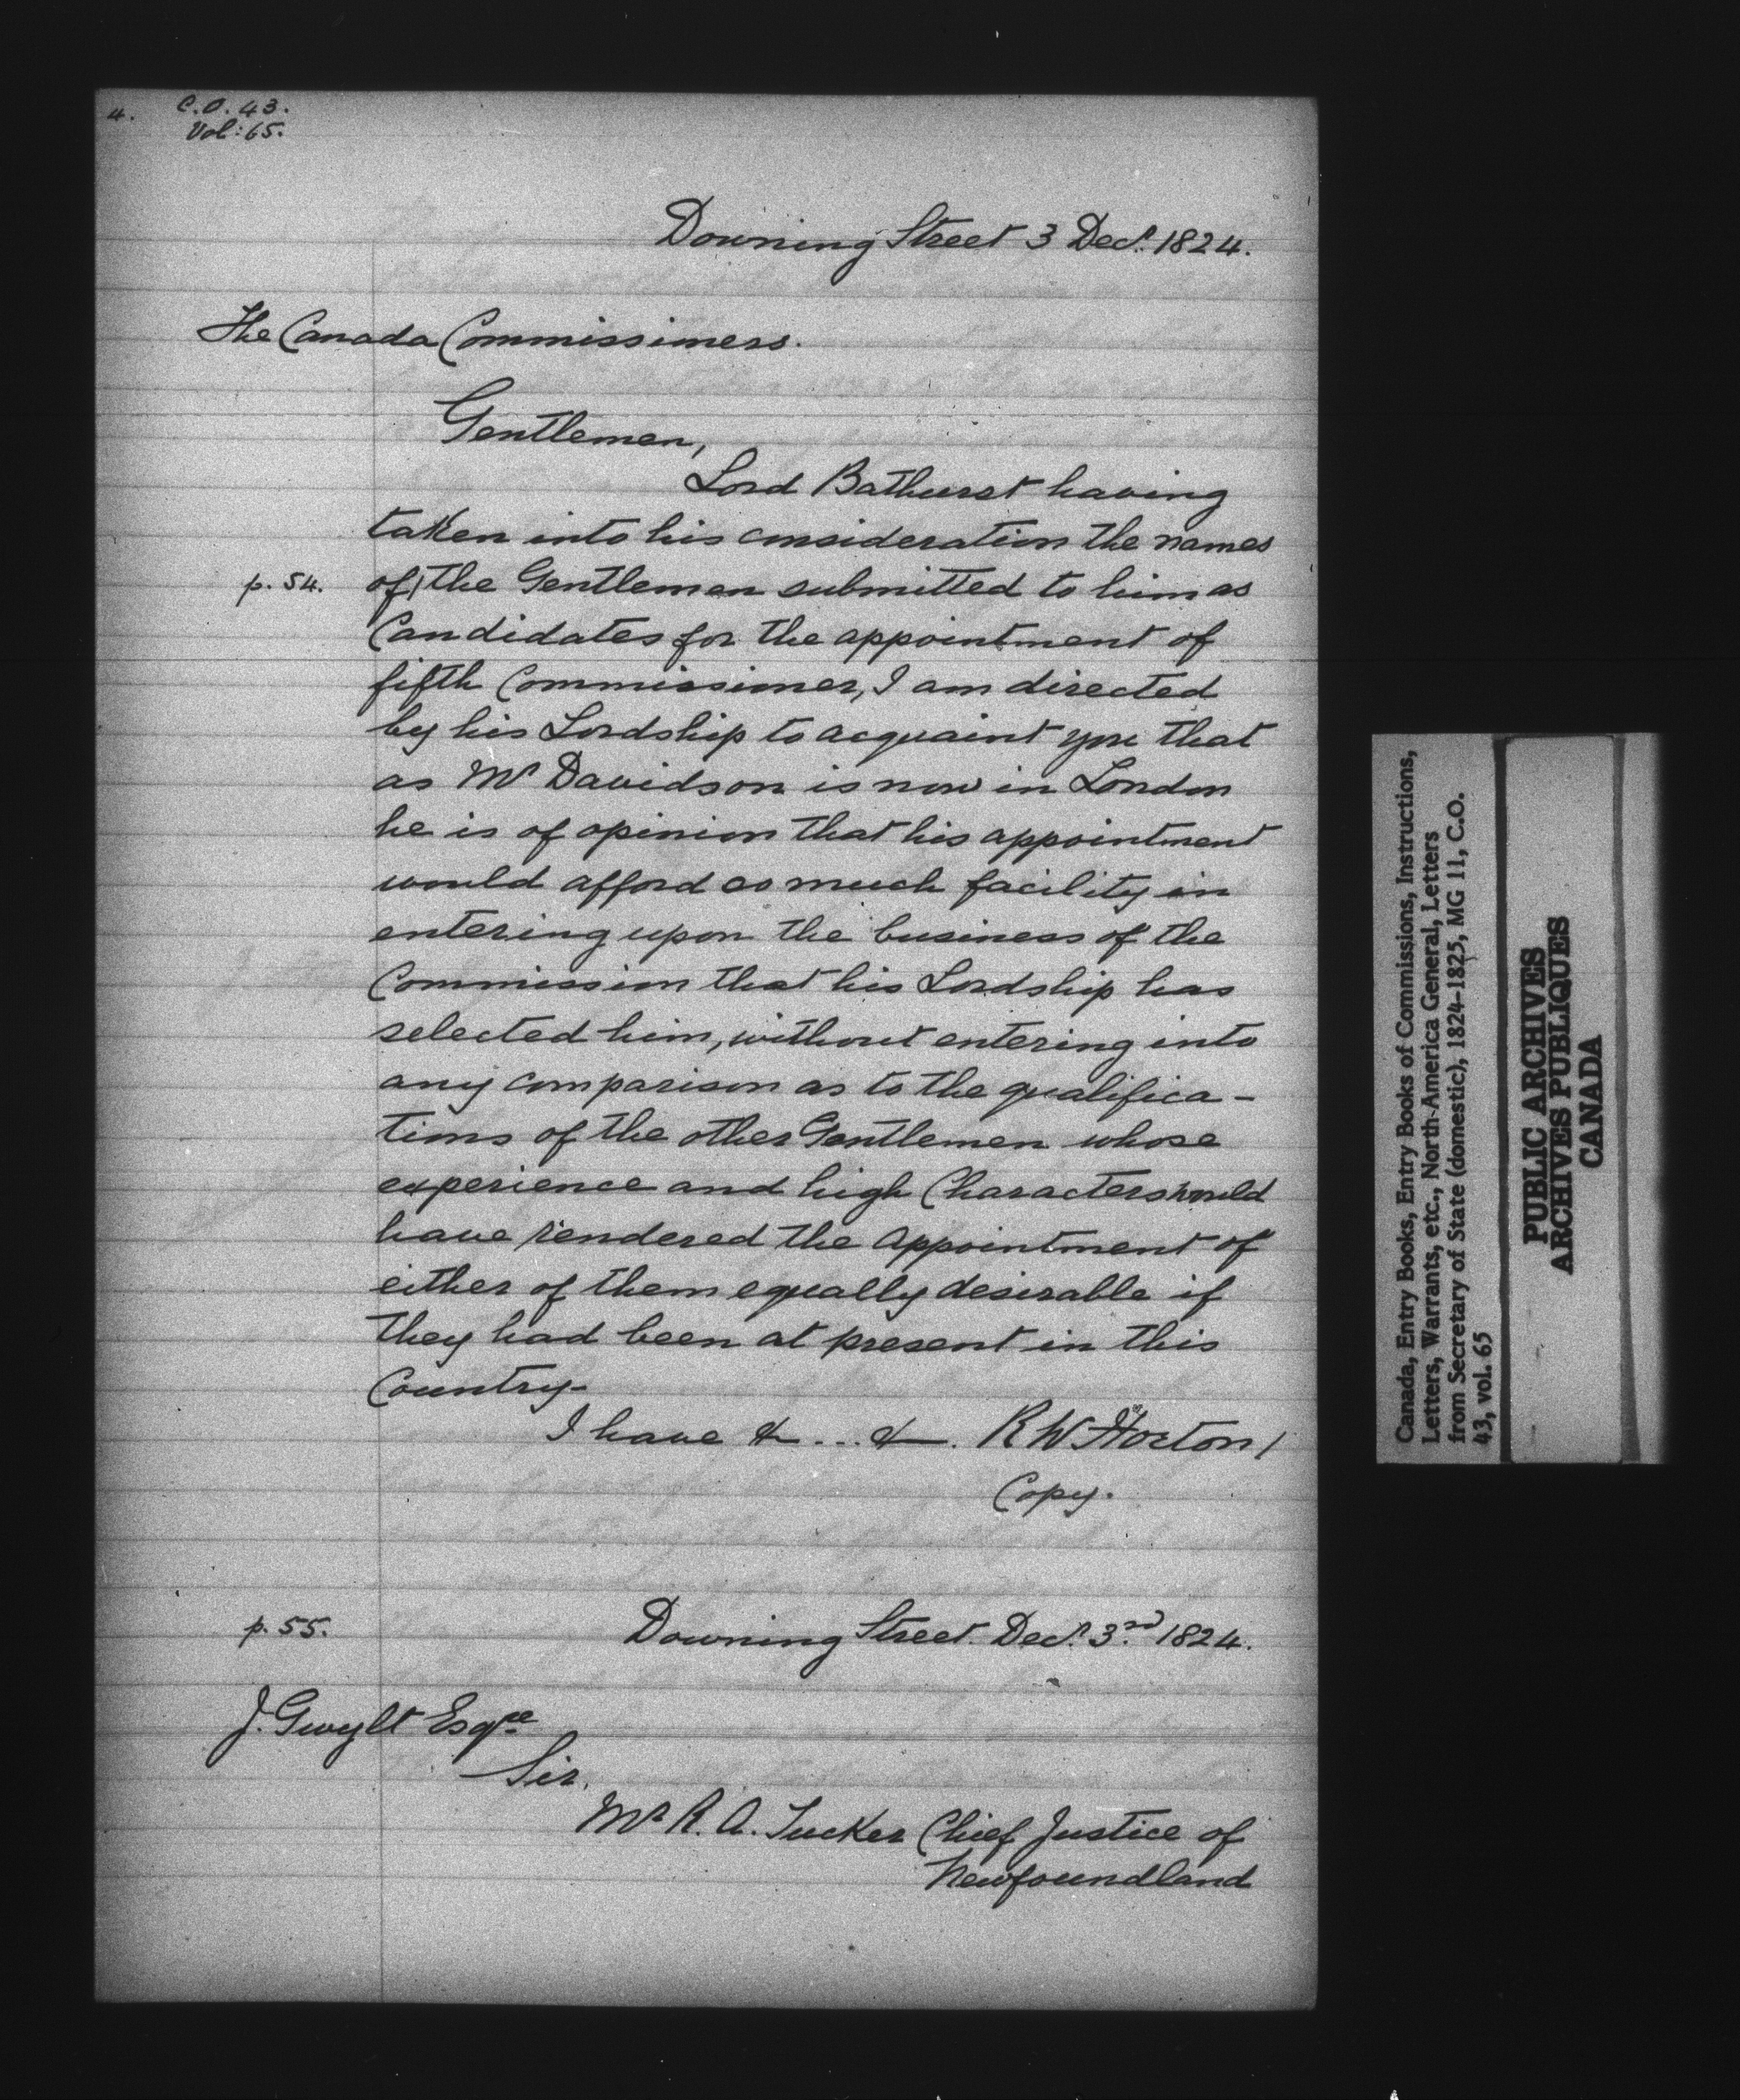 4. C.O. 43.
Vol: 65.
Downing Street 3 Decr. 1824.
The Canada Commissioners.
Gentlemen,
Lord Bathurst having
taken into his consideration the names
p. 54. of/the Gentlemen submitted to him as
Candidates for the appointment of
fifth Commissioner, I am directed
by his Lordship to acquaint you that
as Mr Davidson is now in London
he is of opinion that his appointment
would afford so much facility in
entering upon the business of the
Commission that his Lordship has
selected him, without entering into
any comparison as to the qualifica-
tions of the other Gentlemen whose
experience and high Character would
have rendered the Appointment of
either of them equally desirable if
they had been at present in this
Country-
I have &c ... &c. R W Horton/
Copy.
p. 55. Downing Street. Decr. 3rd. 1824.
J. Gwylt Esqre
Sir,
Mr R. A. Tucker Chief Justice of
Newfoundland
Canada, Entry Books, Entry Books of Commissions, Instructions,
Letters, Warrants, etc., North-America General, Letters
from Secretary of State (domestic), 1824-1825, MG 11, C.O.
43, vol. 65
PUBLIC ARCHIVES
ARCHIVES PUBLIQUES
CANADA